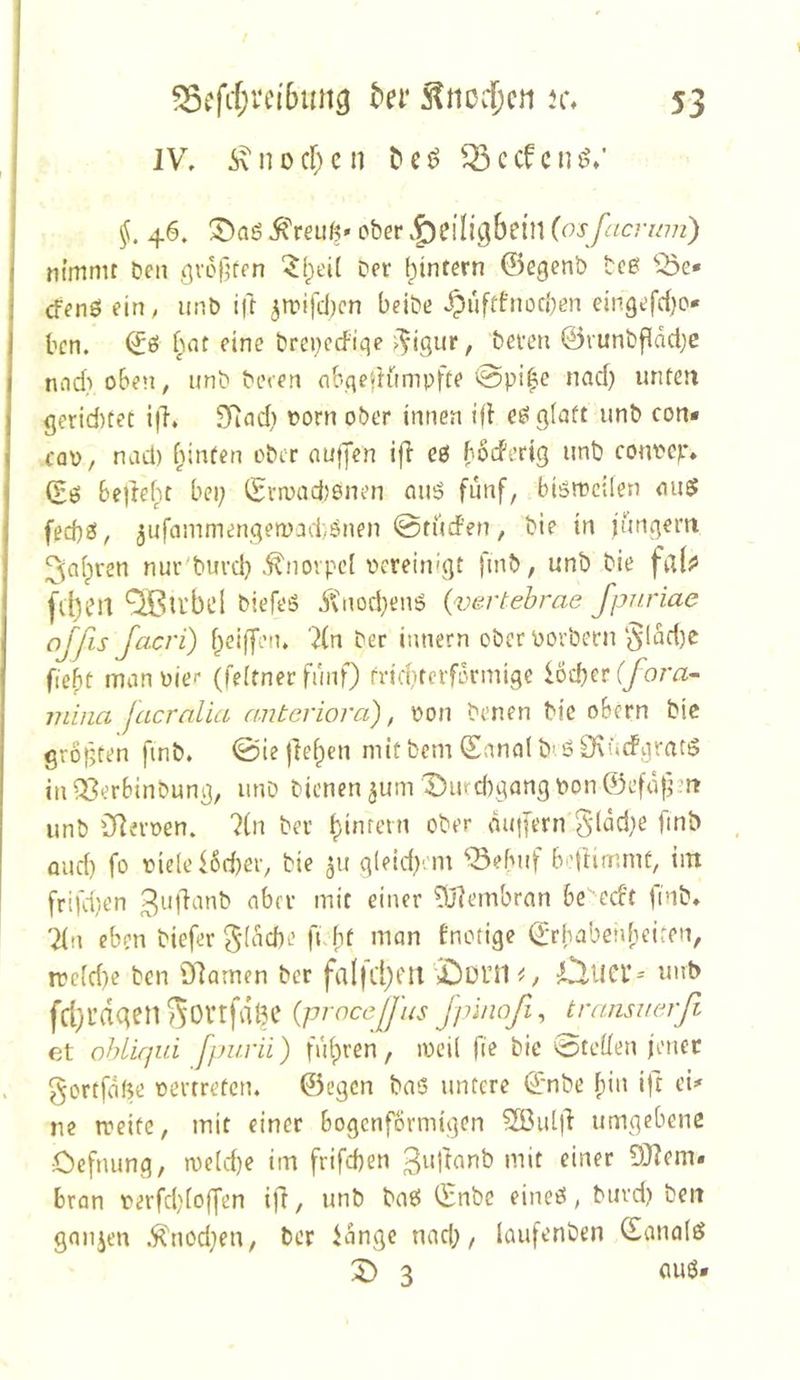 Beschreibung der Knochen ꝛc. 53
IV. Knochen des Beckens.
§. 46. Das Kreuß- oder Heiligbein (os sacrum)
nimmt den größten Theil der hintern Gegend des Be-
ckens ein, und ist zwischen beide Hüftknochen eingescho-
ben. Es hat eine dreyeckige Figur, deren Grundfläche
nach oben, und deren abgestümpfte Spitze nach unten
gerichtet ist. Nach vorn oder innen ist es glatt und con-
cav, nach hinten oder aussen ist es höckerig und convex.
Es besteht bey Erwachsnen aus fünf, bisweilen aus
sechs, zusammengewachsnen Stücken, die in jüngern
Jahren nur durch Knorpel vereinigt sind, und die fal-
schen Wirbel dieses Knochens (vertebrae spuriae
ossis sacri) heissen. An der innern oder vordern Fläche
sieht man vier (seltner fünf) trichterförmige Löcher (fora-
mina sacralia anteriora), von denen die obern die
größten sind. Sie stehen mit dem Canal des Rückgrats
in Verbindung, und dienen zum Durchgang von Gefäßen
und Nerven. An der hintern oder äussern Fläche sind
auch so viele Löcher, die zu gleichem Behuf bestimmt, im
frischen Zustand aber mit einer Membran bedeckt sind.
An eben dieser Fläche sieht man knotige Erhabenheiten,
welche den Namen der falschen Dorn-, Quer- und
schrägen Fortsätze (processus spinosi, transuersi
et obliqui spurii) führen, weil sie die Stellen jener
Fortsätze vertreten. Gegen das untere Ende hin ist ei-
ne weite, mit einer bogenförmigen Wulst umgebene
Oefnung, welche im frischen Zustand mit einer Mem-
bran verschlossen ist, und das Ende eines, durch den
ganzen Knochen, der Länge nach, laufenden Canals
D 3 aus-